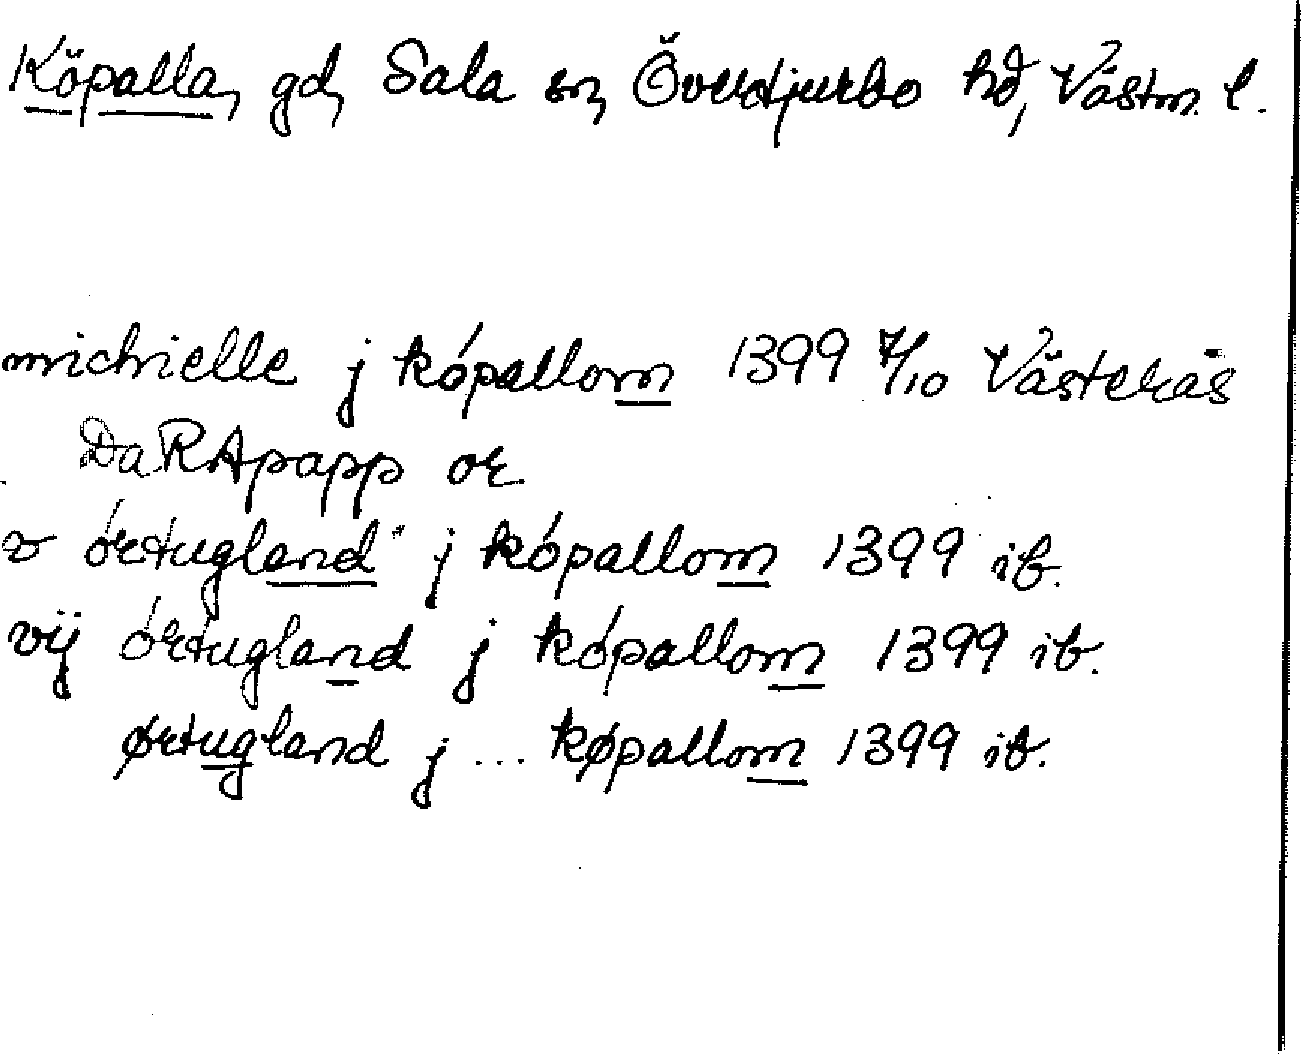 Köpalla, gd, Sala sn, Övertjurbo hd, Västm. l.
michielle j kópallom 1399 7/10 Västerås
DaRApapp or.
v órtugland j kópallom 1399 ib.
vij órtugland j kópallom 1399 ib.
ørtugland j ... køpallom 1399 ib.